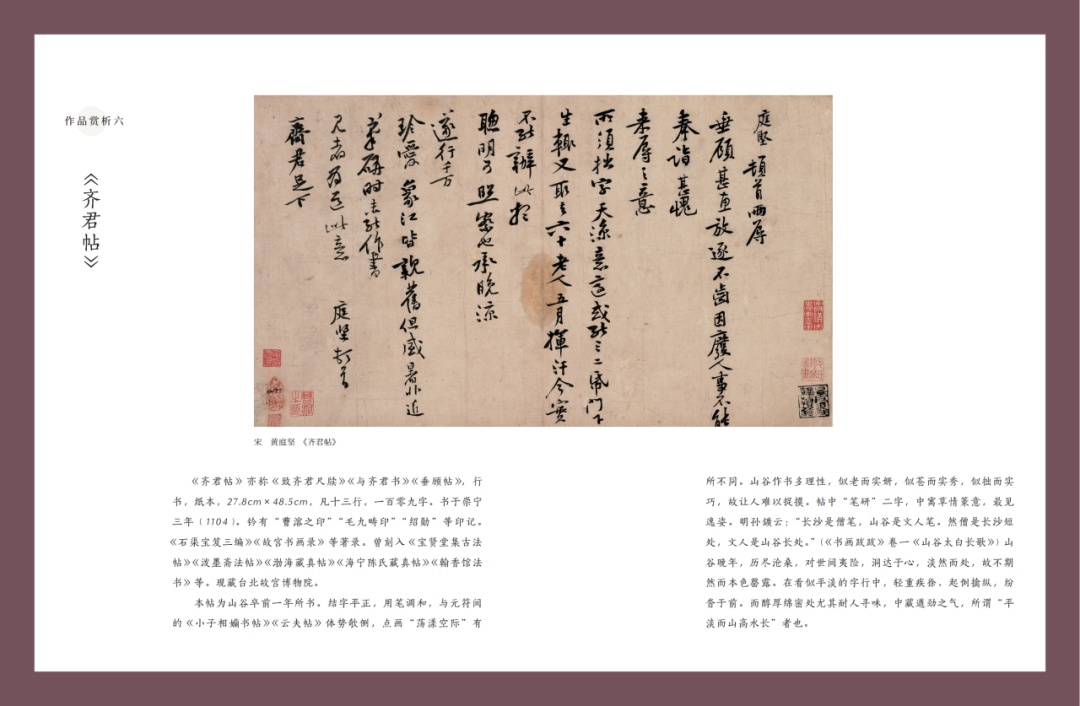 作品赏析六
《齐君帖》
庭坚顿首两辱
垂顾甚惠放逐不齿因废人事不能
奉诣甚愧
来辱之意
所须拙字天凉意适或能三二纸门下
生辄又取之六十老人五月挥汗今实
不能办此想
聪明可照察也承晚凉
遂行千万
珍爱象江皆亲旧但盛暑非近
笔研时未能作书
见者为道此意 庭坚顿首
齐君足下
宋 黄庭坚 《齐君帖》
《齐君帖》亦称《致齐君尺牍》《与齐君书》《垂顾帖》，行
书，纸本，27.8cm × 48.5cm，凡十三行，一百零九字。书于崇宁
三年（1104）。钤有“曹溶之印”“毛九畴印”“绍勋”等印记。
《石渠宝笈三编》《故宫书画录》等著录。曾刻入《宝贤堂集古法
帖》《泼墨斋法帖》《渤海藏真帖》《海宁陈氏藏真帖》《翰香馆法
书》等。现藏台北故宫博物院。
本帖为山谷卒前一年所书。结字平正，用笔调和，与元符间
的《小子相孀书帖》《云夫帖》体势欹侧，点画“荡漾空际”有
所不同。山谷作书多理性，似老而实妍，似苍而实秀，似拙而实
巧，故让人难以捉摸。帖中“笔研”二字，中寓草情篆意，最见
逸姿。明孙鑛云：“长沙是僧笔，山谷是文人笔。然僧是长沙短
处，文人是山谷长处。”（《书画跋跋》卷一《山谷太白长歌》）山
谷晚年，历尽沧桑，对世间夷险，洞达于心，淡然而处，故不期
然而本色罄露。在看似平淡的字行中，轻重疾徐，起倒擒纵，纷
沓于前。而醇厚绵密处尤其耐人寻味，中藏遒劲之气，所谓“平
淡而山高水长”者也。